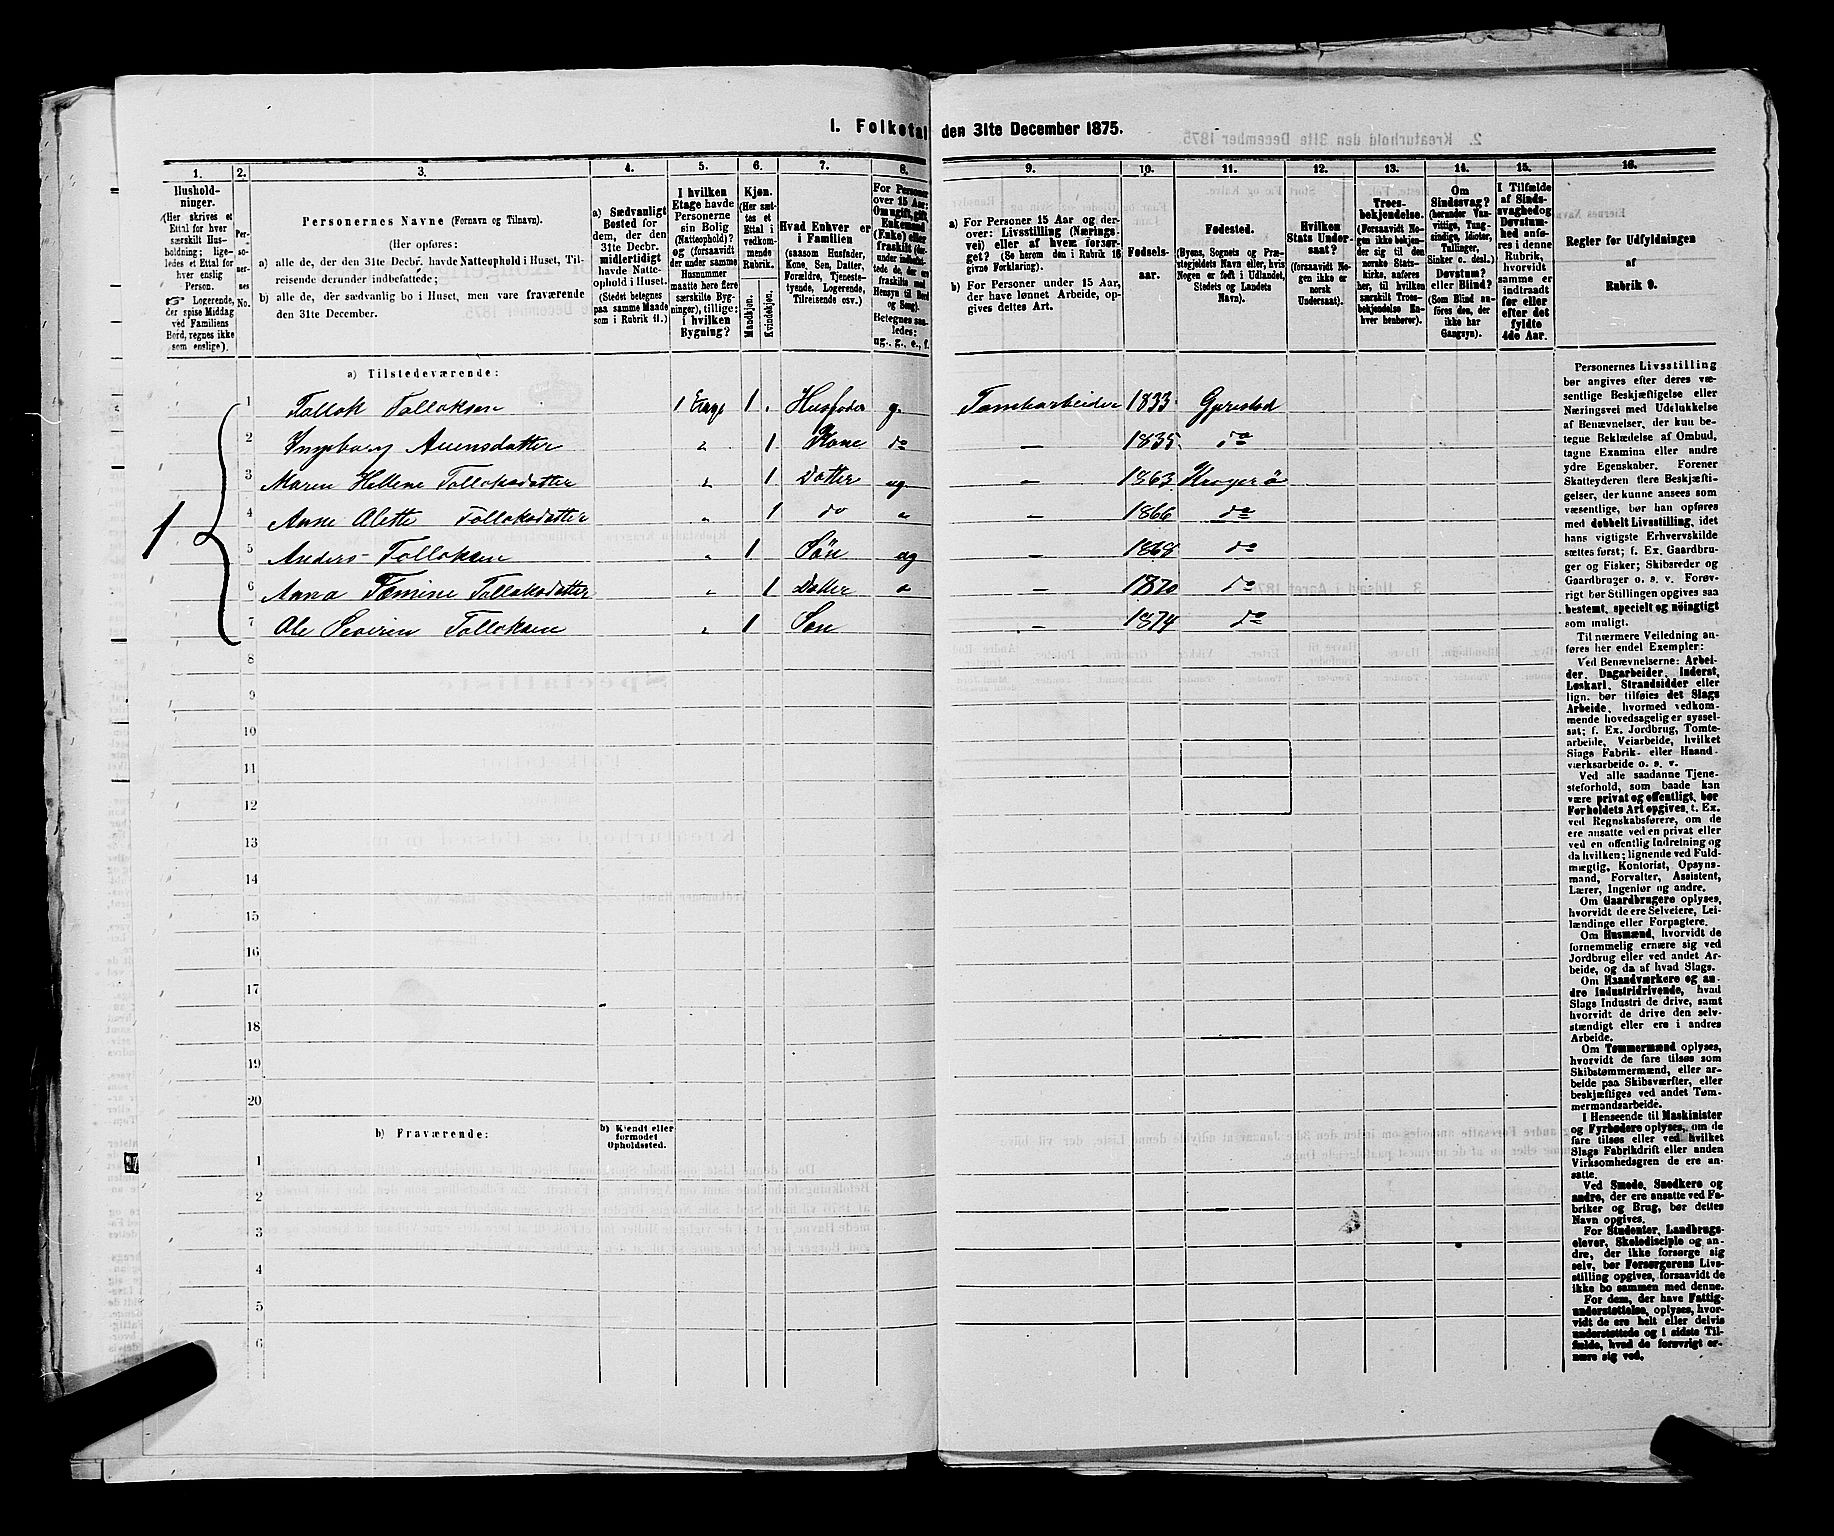 1. Folketal den 31te December 1875.
1. 2. 3. 4. 5. 6. 7. 8. 9. 10. 11. 12. 13. 14. 15. 16.
Hushold-
ninger.
(Her skrives et
Ettal for hver
særskilt Hus-
holdning; lige-
ledes et Ettal for
hver enslig
Person.
☞ Logerende,
der spise Middag
ved Familiens
Bord, regnes ikke
som enslige).
Per-
so-
ner-
nes
No.
Personernes Navne (Fornavn og Tilnavn).
(Her opføres:
a) alle de, der den 31te Decbr. havde Natteophold i Huset, Til-
reisende derunder indbefattede;
b) alle de, der sædvanlig bo i Huset, men vare fraværende
den 31te December.
a) Sædvanligt
Bosted for
dem, der den
31te Decbr.
midlertidigt
havde Natte-
ophold i Huset.
(Stedet betegnes
paa samme Maade
som i Rubrik 11.)
I hvilken
Etage havde
Personerne
sin Bolig
(Natteophold)?
og (forsaavidt
der under samme
Husnummer
maatte høre flere
særskilte Byg-
ninger), tillige:
i hvilken
Bygning?
Kjøn.
(Her sæt-
tes et
Ettal i
vedkom-
mende
Rubrik.
Mandkjøn.
Kvindekjøn.
Hvad Enhver er
i Familien
(saasom Husfader,
Kone, Søn, Datter,
Forældre, Tjeneste-
tyende, Logerende,
Tilreisende osv.)
For Personer
over 15 Aar:
Om ugift, gift,
Enkemand
(Enke) eller
fraskilt
Betegnes saa-
ledes:
ug., g., e., f.
a) For Personer 15 Aar og der-
over: Livsstilling (Nærings-
vei) eller af hvem forsør-
get? (Se herom den i Rubrik 16
givne Forklaring).
b) For Personer under 15 Aar,
der have lønnet Arbeide, op-
gives dettes Art.
Fødsels-
aar.
Fødested.
(Byens, Sognets og Præ-
stegjeldets Navn eller, hvis
Nogen er født i Udlandet,
Stedets og Landets
Navn).
Hvilken
Stats Under-
saat?
(forsaavidt No-
gen ikke er
norsk
Undersaat).
Troes-
bekjendelse.
(Forsaavidt No-
gen ikke bekjen-
der sig til den
norske Stats-
kirke, anføres
her, til hvilken
særskilt Troes-
bekjendelse En-
hver henhører).
Om
Sindssvag?
(herunder Van-
vittige, Tung-
sindige, Idioter,
Tullinger,
Sinker o. desl.)
Døvstum?
eller Blind?
(Som Blind an-
føres den, der
ikke har
Gangsyn).
I Tilfælde
af Sinds-
svaghed og
Døvstum-
hed anfø-
res i denne
Rubrik,
hvorvidt
samme er
indtraadt
før eller
efter det
fyldte
4de Aar.
Regler for Udfyldningen
af
Rubrik 9.
a) Tilstedeværende:
1 Tallok Talloksen 1 Etage 1 Husfader g. Tomtearbeider 1833 Gjerestad
2 Ingeborg Auensdatter " 1 Kone do — 1835 do
3 Maren Hellene Talloksdatter " 1 Datter ug — 1863 Kragerö
4 Anne Alette Talloksdatter " 1 do " — 1866 do
5 Anders Talloksen " 1 Søn ug — 1868 do
6 Anna Tomine Talloksdatter " 1 Datter " — 1870 do
7 Ole Severin Talloksen " 1 Søn — 1874 do
1
8
9
10
11
12
13
14
15
16
17
18
19
20
b) Fraværende:
b) Kjendt eller
formodet
Opholdssted.
1
2
3
4
5
6
Personernes Livsstilling
bør angives efter deres væ-
sentlige Beskjæftigelse eller
Næringsvei med Udelukkelse
af Benævnelser, der kun be-
tegne Beklædelse af Ombud,
tagne Examina eller andre
ydre Egenskaber. Forener
Skatteyderen flere Beskjæfti-
gelser, der kunne ansees som
væsentlige, bør han opføres
med dobbelt Livsstilling, idet
hans vigtigste Erhvervskilde
sættes først; f. Ex. Gaardbru-
ger og Fisker; Skibsreder og
Gaardbruger o. s. v. Forøv-
rigt bør Stillingen opgives saa
bestemt, specielt og nöiagtigt
som muligt.
Til nærmere Veiledning an-
føres her endel Exempler:
Ved Benævnelserne: Arbei-
der, Dagarbeider, Inderst,
Løskarl, Strandsidder eller
lign. bør tilføies det Slags
Arbeide, hvormed vedkom-
mende hovedsagelig er syssel-
sat; f. Ex. Jordbrug, Tomte-
arbeide, Veiarbeide, hvilket
Slags Fabrik- eller Haand-
værksarbeide o. s. v.
Ved alle saadanne Tjene-
steforhold, som baade kan
være privat og offentligt, bør
Forholdets Art opgives, t. Ex.
ved Regnskabsførere, om de
ere ansatte ved en privat eller
ved en offentlig Indretning og
da hvilken; lignende ved Fuld-
mægtig, Kontorist, Opsyns-
mand, Forvalter, Assistent,
Lærer, Ingeniør og andre.
Om Gaardbrugere oplyses,
hvorvidt de ere Selveiere, Lei-
lændinge eller Forpagtere.
Om Husmænd, hvorvidt de
fornemmelig ernære sig ved
Jordbrug eller ved andet Ar-
beide, og da af hvad Slags.
Om Haandværkere og an-
dre Industridrivende, hvad
Slags Industri de drive, samt
hvorvidt de drive den selv-
stændigt eller ere i andres
Arbeide.
Om Tømmermænd oplyses,
hvorvidt de fare tilsøs som
Skibstømmermænd, eller ar-
beide paa Skibsværfter, eller
beskjæftiges ved andet Tøm-
mermandsarbeide.
I Henseende til Maskinister
og Fyrbødere oplyses, om de
fare tilsøs eller ved hvilket
Slags Fabrikdrift eller anden
Virksomhedsgren de ere an-
satte.
Ved Smede, Snedkere og
andre, der ere ansatte ved Fa-
briker og Brug, bør dettes
Navn opgives.
For Studenter, Landbrugs-
elever, Skoledisciple og an-
dre, der ikke forsørge sig
selv, bør Forsørgerens Livs-
stilling opgives, forsaavidt de
ikke bo sammen med denne.
For dem, der have Fattig-
understøttelse, oplyses, hvor-
vidt de ere helt eller delvis
understøttede og i sidste Til-
fælde, hvad de forøvrigt er-
nære sig ved.